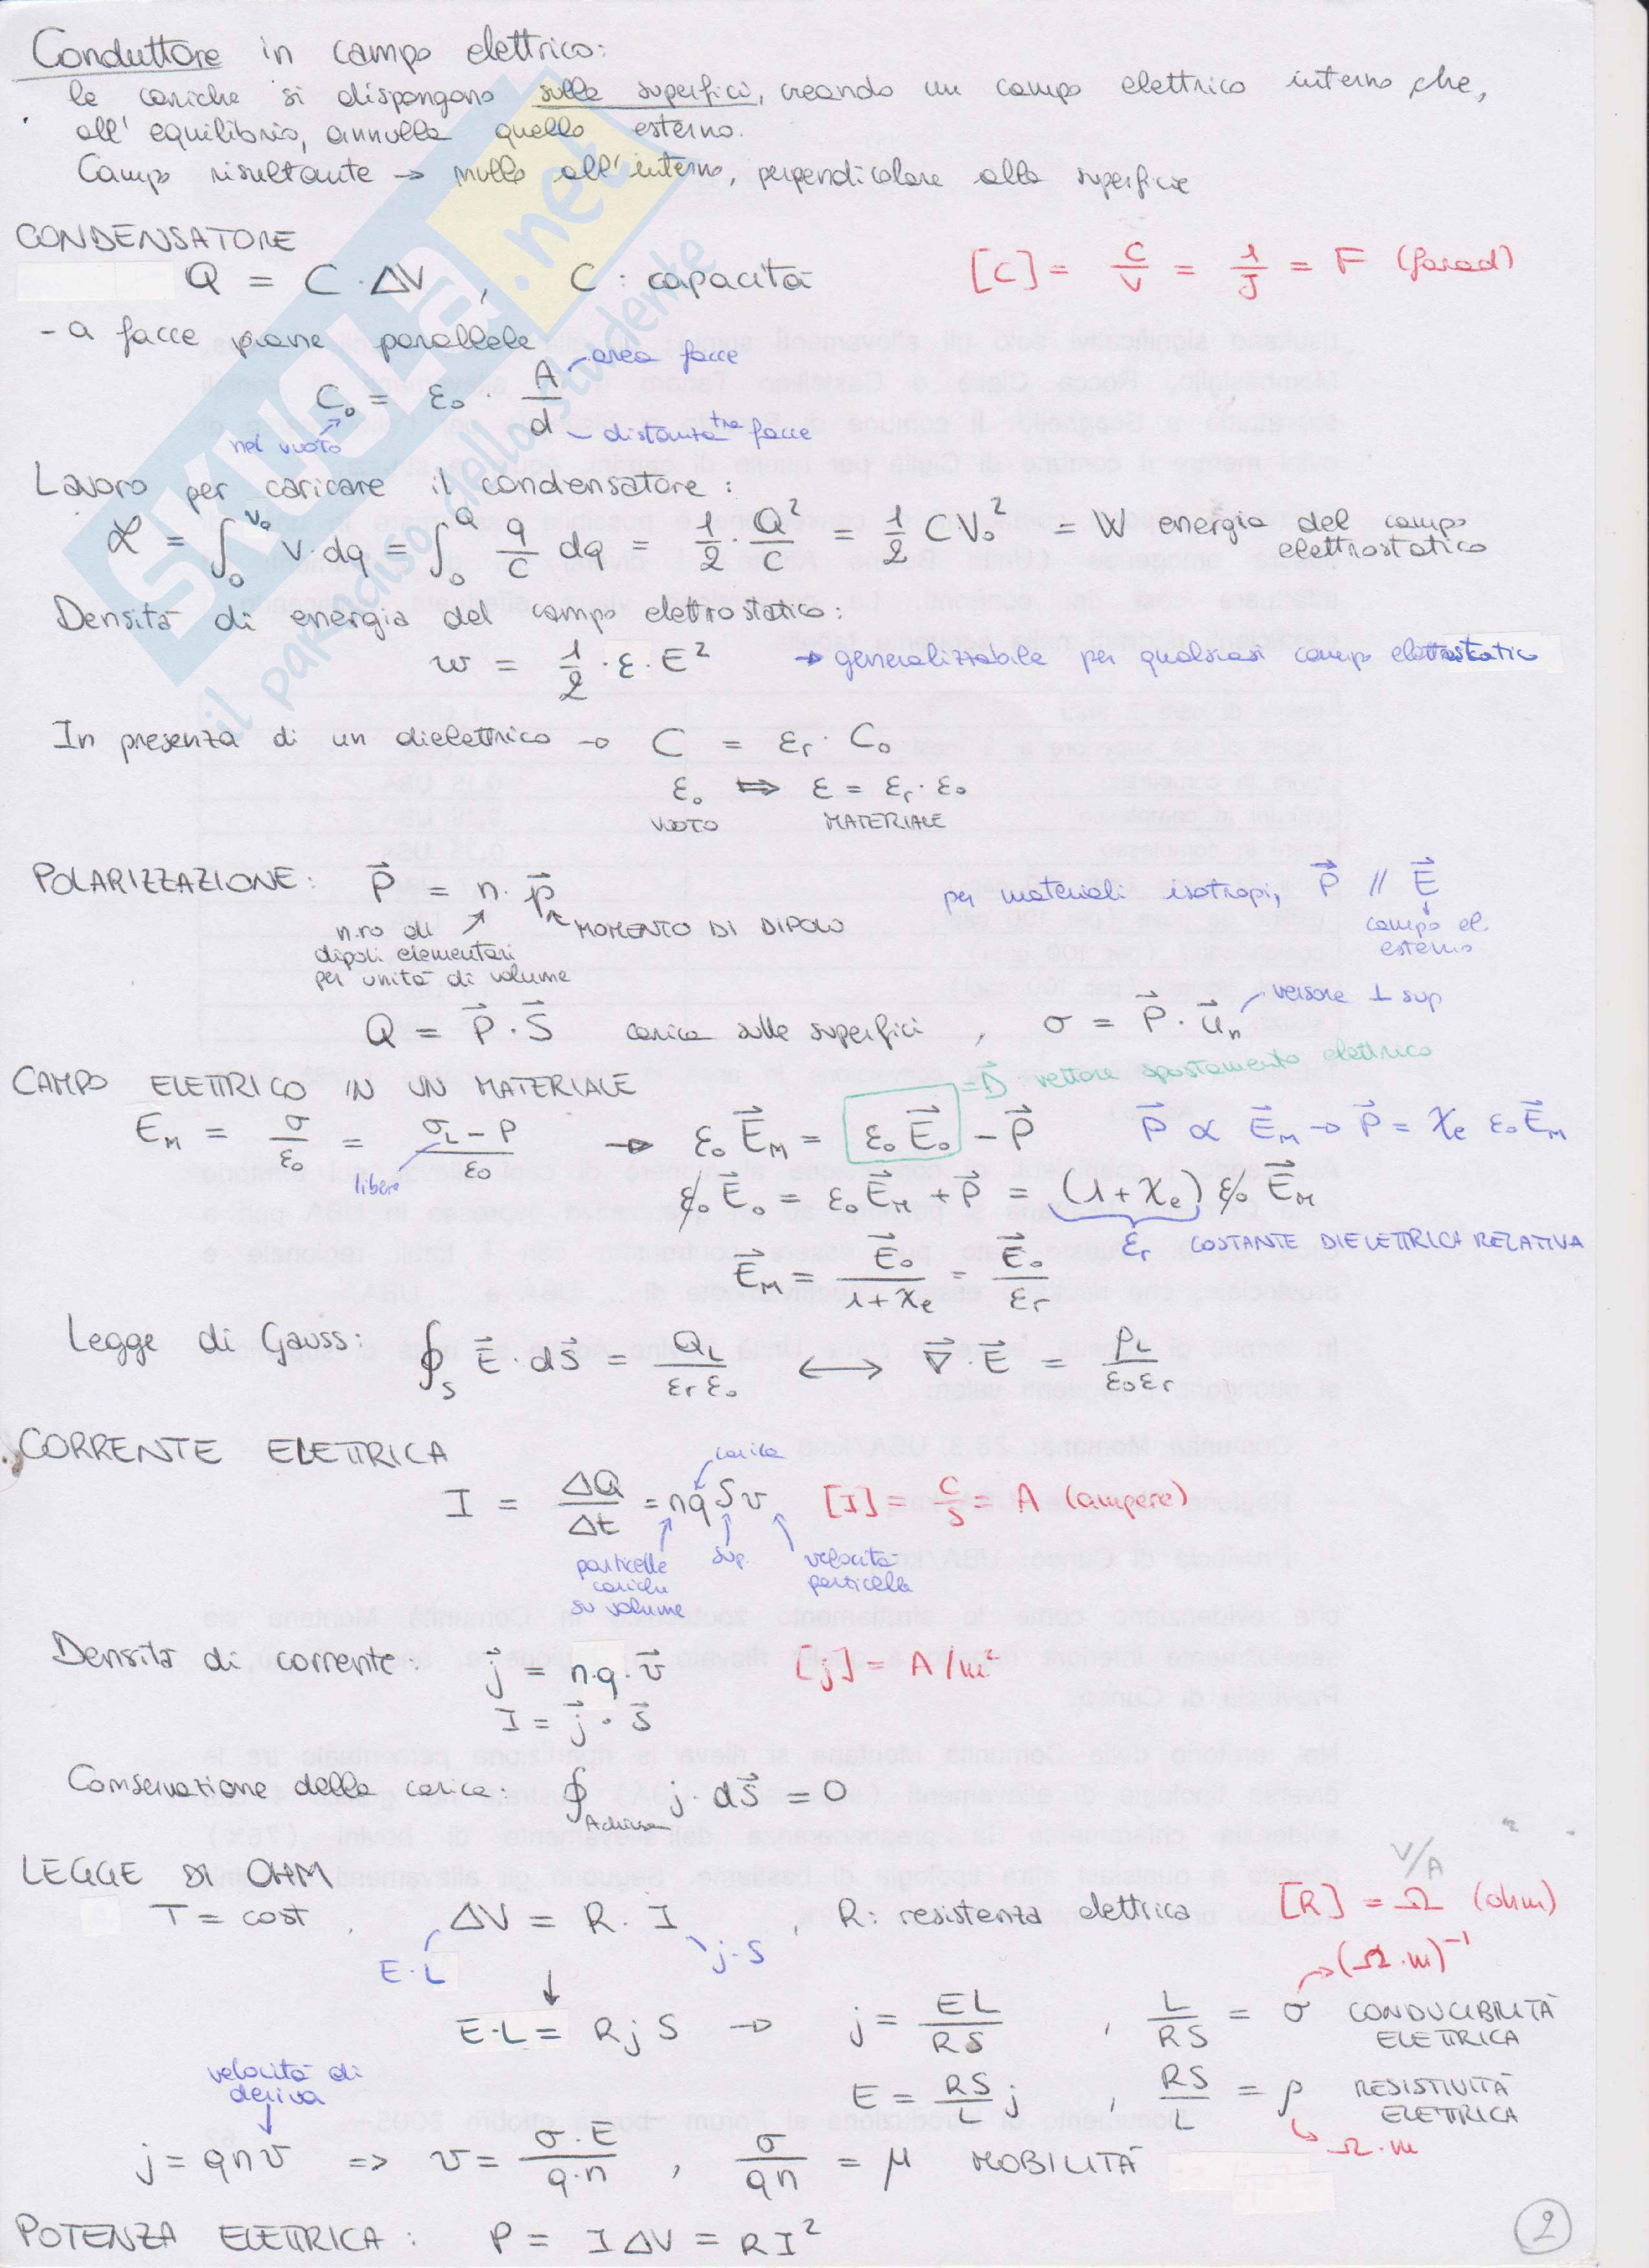 Conduttore in campo elettrico:
le cariche si dispongono sulle superfici, creando un campo elettrico interno che,
all'equilibrio, annulla quello esterno.
Campo risultante → nullo all'interno, perpendicolare alla superficie
CONDENSATORE
Q = C · ΔV , C : capacità [C] = C/V = 1/J = F (farad)
- a facce piane parallele
C₀ = ε₀ · A/d
area facce
nel vuoto
distanza tra facce
Lavoro per caricare il condensatore:
L = ∫₀^V₀ V·dq = ∫₀^Q q/C dq = 1/2 · Q²/C = 1/2 CV₀² = W energia del campo elettrostatico
Densità di energia del campo elettrostatico:
w = 1/2 · ε · E² → generalizzabile per qualsiasi campo elettrostatico
In presenza di un dielettrico → C = εr · C₀
ε₀ ⇔ ε = εr · ε₀
VUOTO MATERIALE
POLARIZZAZIONE: P⃗ = n · p⃗ per materiali isotropi, P⃗ // E⃗
n.ro di dipoli elementari per unità di volume
MOMENTO DI DIPOLO
campo el. esterno
Q = P⃗ · S⃗ carica sulle superfici , σ = P⃗ · u⃗n versore ⊥ sup
CAMPO ELETTRICO IN UN MATERIALE
= D⃗ vettore spostamento elettrico
E_M = σ/ε₀ = (σ_L − P)/ε₀ → ε₀ E⃗_M = ε₀ E⃗₀ − P⃗ P⃗ ∝ E⃗_M → P⃗ = χe ε₀ E⃗_M
libere
ε₀ E⃗₀ = ε₀ E⃗_M + P⃗ = (1 + χe) ε₀ E⃗_M
εr COSTANTE DIELETTRICA RELATIVA
E⃗_M = E⃗₀/(1 + χe) = E⃗₀/εr
Legge di Gauss: ∮_S E⃗ · dS⃗ = Q_L/(εr ε₀) ⟷ ∇⃗ · E⃗ = ρ_L/(ε₀ εr)
CORRENTE ELETTRICA
carica
I = ΔQ/Δt = nqSv [I] = C/s = A (ampere)
particelle cariche su volume
sup.
velocità particelle
Densità di corrente: j⃗ = n·q·v⃗ [j] = A/m²
I = j⃗ · S⃗
Conservazione della carica: ∮_A chiusa j · dS⃗ = 0
LEGGE DI OHM
V/A
T = cost , ΔV = R · I , R: resistenza elettrica [R] = Ω (ohm)
E·L j·S
(Ω·m)⁻¹
E·L = R j S → j = EL/RS , L/RS = σ CONDUCIBILITÀ ELETTRICA
E = RS/L j , RS/L = ρ RESISTIVITÀ ELETTRICA
Ω·m
velocità di deriva
j = qnv => v = σ·E/q·n , σ/qn = μ MOBILITÀ
POTENZA ELETTRICA: P = I ΔV = RI²
2
SKUOLA.net
il paradiso dello studente